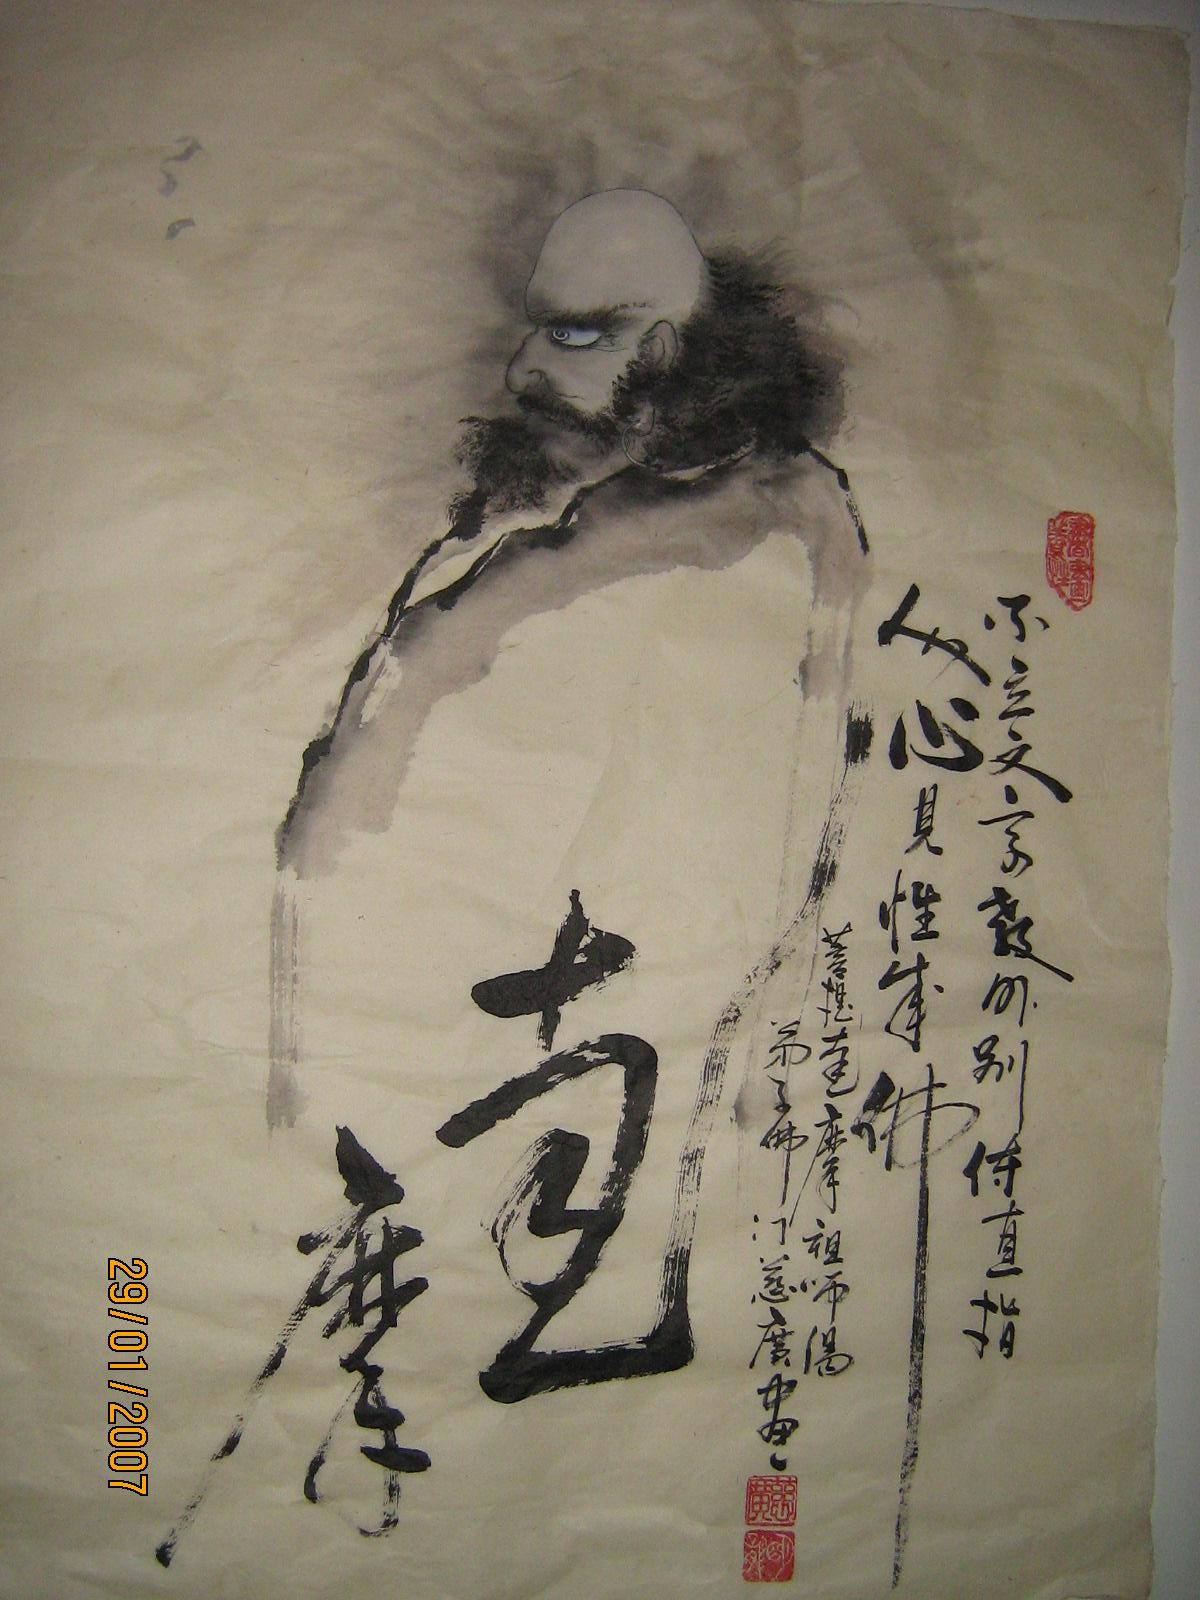 不立文字教外別傳直指
人心見性成佛
菩提達摩祖師湯
弟子佛門慈廣畫
達
摩
29/01/2007